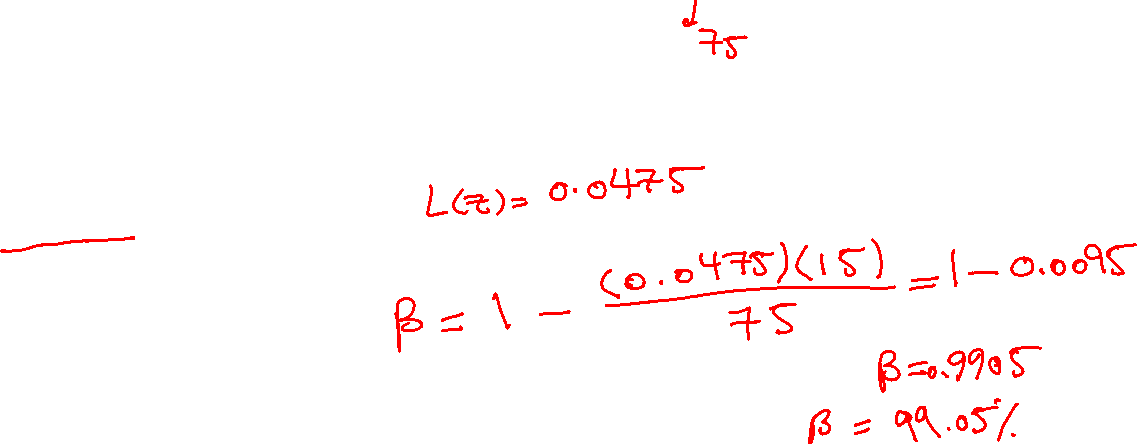 75
L(z) = 0.0475
β = 1 - (0.0475)(15) / 75 = 1 - 0.0095
β = 0.9905
β = 99.05%